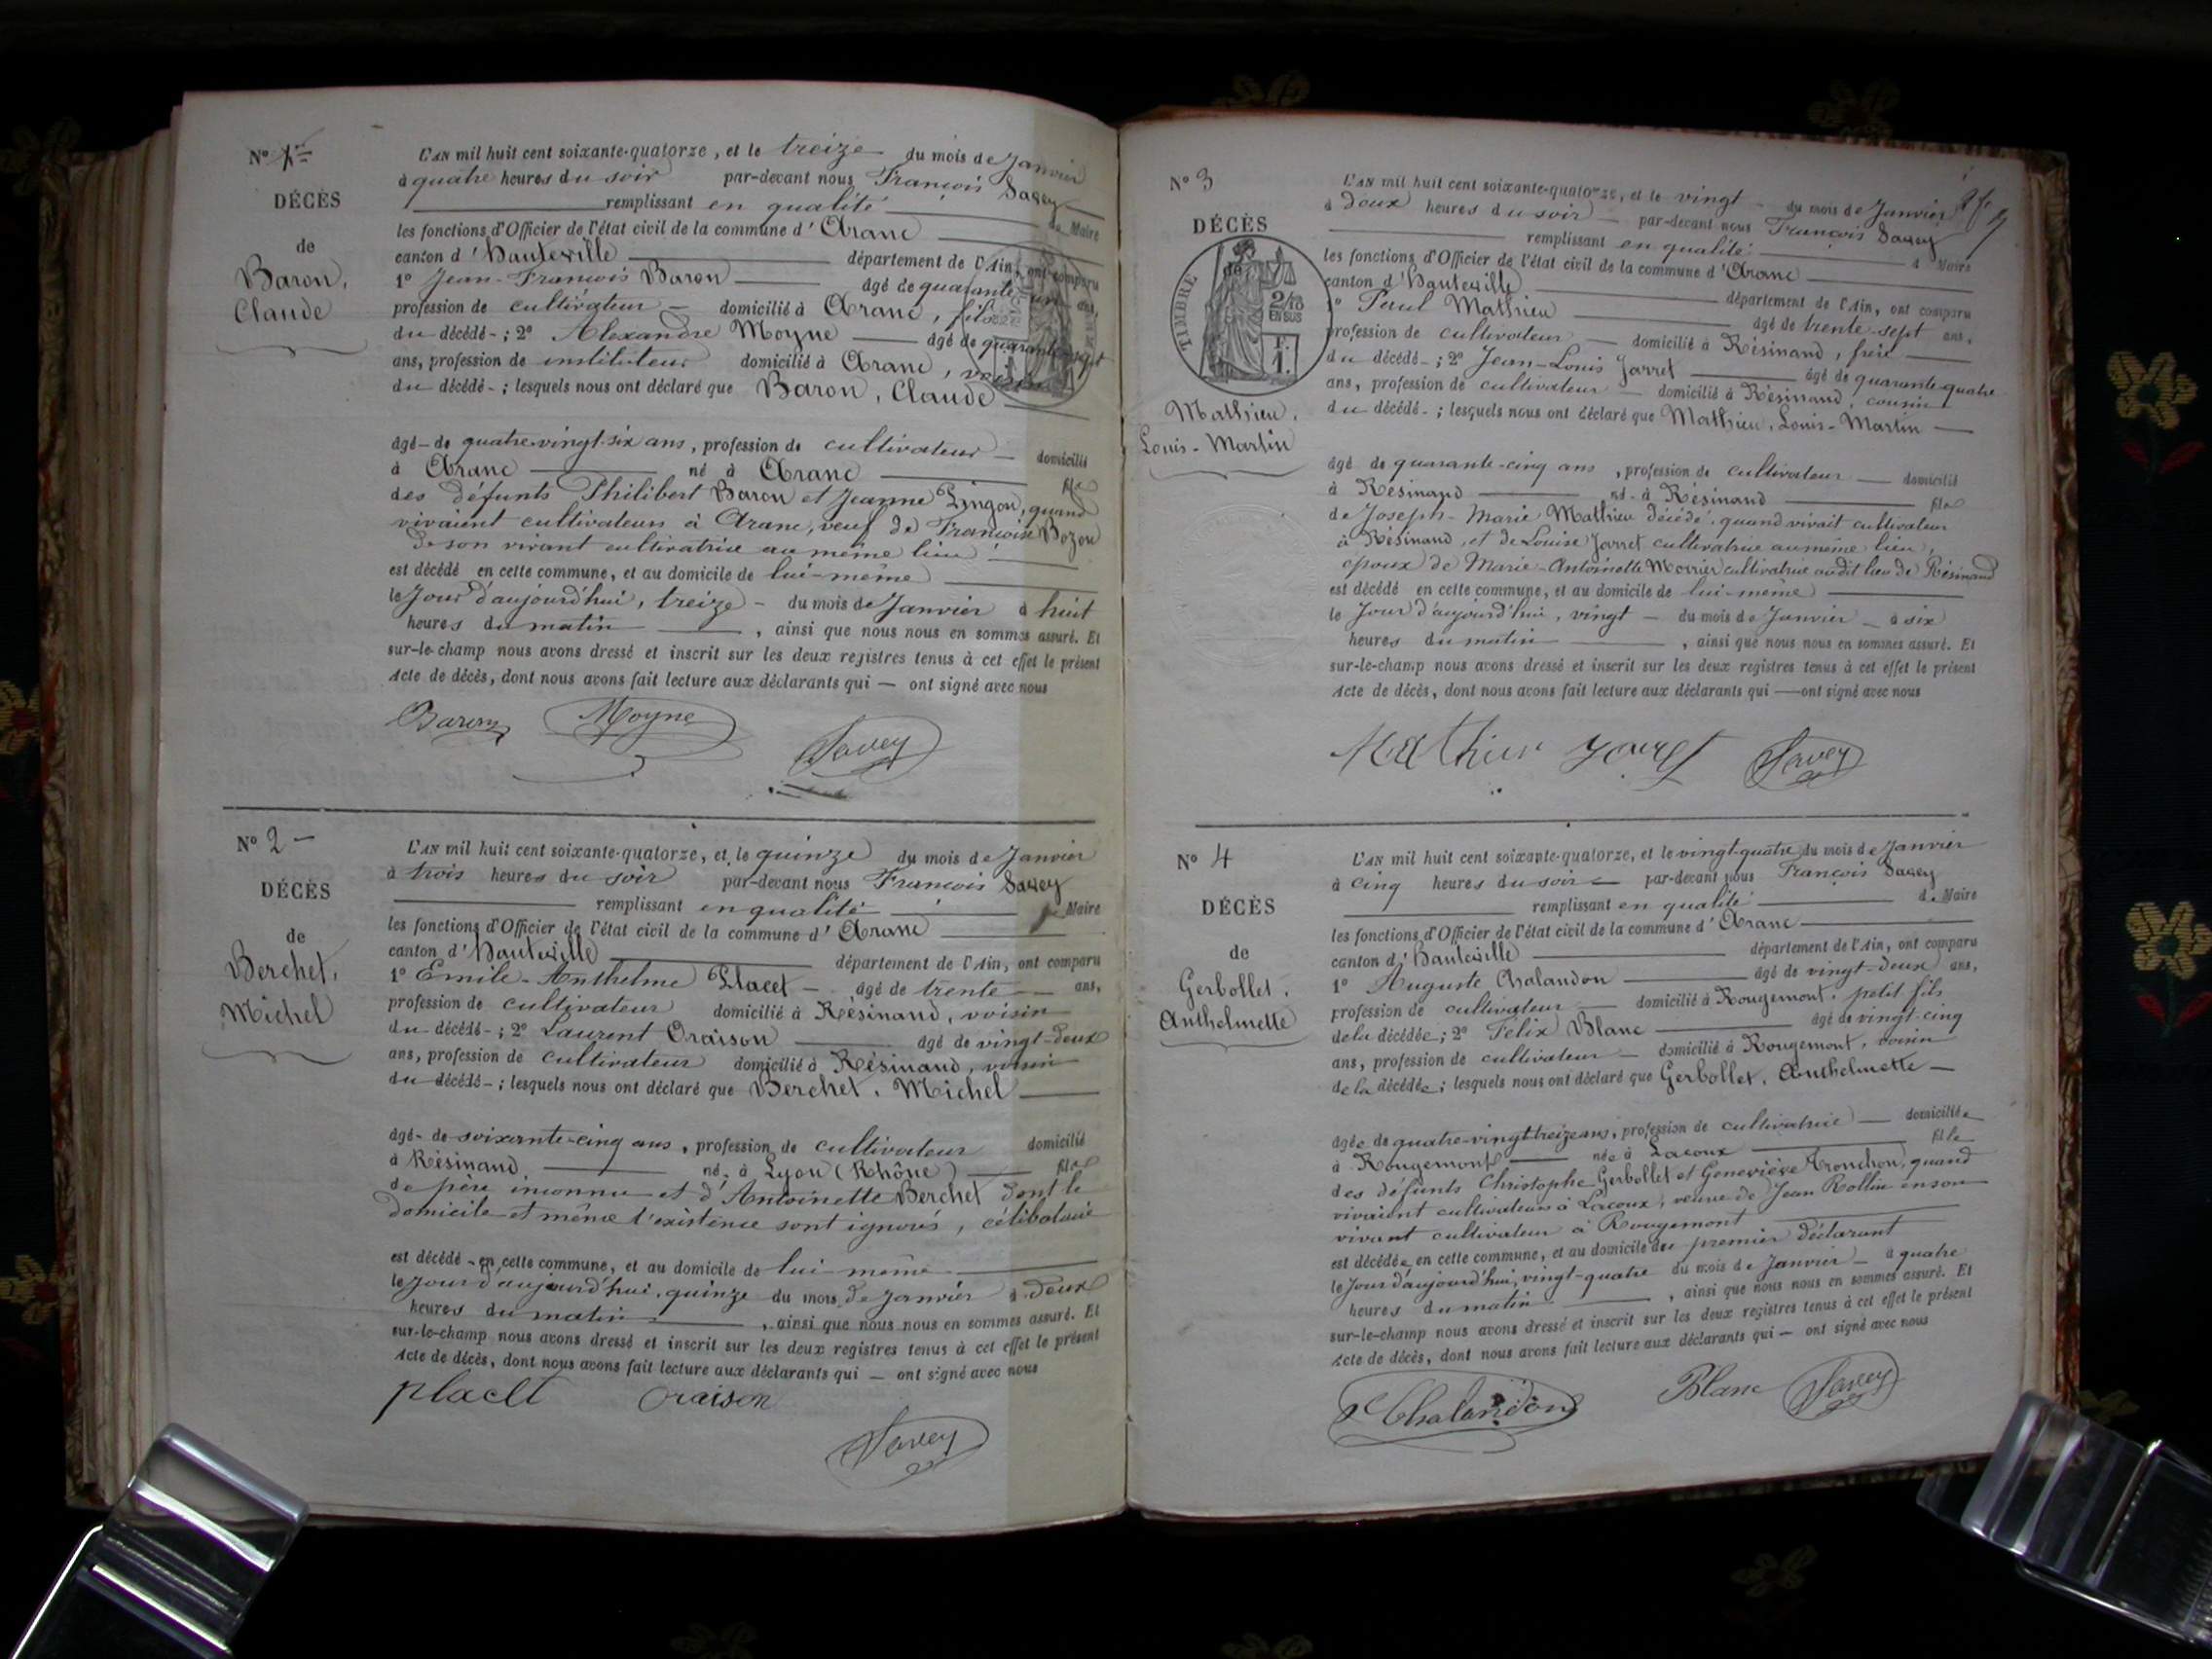 N° 1er
DÉCÈS
de
Baron,
Claude
L'AN mil huit cent soixante-quatorze, et le treize du mois de Janvier
à quatre heures du soir par-devant nous François Savey
remplissant en qualité de Maire
les fonctions d'Officier de l'état civil de la commune d'Aranc
canton d'Hauteville département de l'Ain, ont comparu
1° Jean-François Baron âgé de quarante un ans,
profession de cultivateur domicilié à Aranc, fils
du décédé ; 2° Alexandre Moyne âgé de quarante sept
ans, profession de instituteur domicilié à Aranc, voisin
du décédé ; lesquels nous ont déclaré que Baron, Claude
âgé de quatre-vingt-six ans, profession de cultivateur domicilié
à Aranc né à Aranc fils
des défunts Philibert Baron et Jeanne Zingon, quand
vivaient cultivateurs à Aranc, veuf de Françoise Bozon
de son vivant cultivatrice au même lieu
est décédé en cette commune, et au domicile de lui-même
le jour d'aujourd'hui, treize du mois de Janvier à huit
heures du matin, ainsi que nous nous en sommes assuré. Et
sur-le-champ nous avons dressé et inscrit sur les deux registres tenus à cet effet le présent
Acte de décès, dont nous avons fait lecture aux déclarants qui — ont signé avec nous
Baron Moyne Savey
N° 2
DÉCÈS
de
Berchet,
Michel
L'AN mil huit cent soixante-quatorze, et le quinze du mois de Janvier
à trois heures du soir par-devant nous François Savey
remplissant en qualité Maire
les fonctions d'Officier de l'état civil de la commune d'Aranc
canton d'Hauteville département de l'Ain, ont comparu
1° Emile-Anthelme Placet âgé de trente ans,
profession de cultivateur domicilié à Résinand, voisin
du décédé ; 2° Laurent Oraison âgé de vingt-deux
ans, profession de cultivateur domicilié à Résinand, voisin
du décédé ; lesquels nous ont déclaré que Berchet, Michel
âgé de soixante-cinq ans, profession de cultivateur domicilié
à Résinand né à Lyon (Rhône) fils
de père inconnu et d'Antoinette Berchet dont le
domicile et même l'existence sont ignorés, célibataire
est décédé en cette commune, et au domicile de lui-même
le jour d'aujourd'hui, quinze du mois de Janvier à deux
heures du matin, ainsi que nous nous en sommes assuré. Et
sur-le-champ nous avons dressé et inscrit sur les deux registres tenus à cet effet le présent
Acte de décès, dont nous avons fait lecture aux déclarants qui — ont signé avec nous
placet oraison
Savey
N° 3
DÉCÈS
de
TIMBRE
2/10
EN SUS
F.
1.
Mathieu,
Louis-Martin
L'AN mil huit cent soixante-quatorze, et le vingt du mois de Janvier
à deux heures du soir par-devant nous François Savey
remplissant en qualité de Maire
les fonctions d'Officier de l'état civil de la commune d'Aranc
canton d'Hauteville département de l'Ain, ont comparu
1° Paul Mathieu âgé de trente-sept ans,
profession de cultivateur domicilié à Résinand, frère
du décédé ; 2° Jean-Louis Jarret âgé de quarante-quatre
ans, profession de cultivateur domicilié à Résinand, cousin
du décédé ; lesquels nous ont déclaré que Mathieu, Louis-Martin
âgé de quarante-cinq ans, profession de cultivateur domicilié
à Résinand né à Résinand fils
de Joseph-Marie Mathieu décédé, quand vivait cultivateur
à Résinand, et de Louise Jarret cultivatrice au même lieu,
époux de Marie-Antoinette Morrier cultivatrice audit lieu de Résinand
est décédé en cette commune, et au domicile de lui-même
le jour d'aujourd'hui, vingt du mois de Janvier à six
heures du matin, ainsi que nous nous en sommes assuré. Et
sur-le-champ nous avons dressé et inscrit sur les deux registres tenus à cet effet le présent
Acte de décès, dont nous avons fait lecture aux déclarants qui — ont signé avec nous
Mathieu Jarret Savey
N° 4
DÉCÈS
de
Gerbollet,
Anthelmette
L'AN mil huit cent soixante-quatorze, et le vingt-quatre du mois de Janvier
à cinq heures du soir par-devant nous François Savey
remplissant en qualité de Maire
les fonctions d'Officier de l'état civil de la commune d'Aranc
canton d'Hauteville département de l'Ain, ont comparu
1° Auguste Chalandon âgé de vingt-deux ans,
profession de cultivateur domicilié à Rougemont, petit fils
de la décédée ; 2° Felix Blanc âgé de vingt-cinq
ans, profession de cultivateur domicilié à Rougemont, voisin
de la décédée ; lesquels nous ont déclaré que Gerbollet, Anthelmette
âgée de quatre-vingt-treize ans, profession de cultivatrice domiciliée
à Rougemont née à Lacoux fille
des défunts Christophe Gerbollet et Geneviève Tronchon, quand
vivaient cultivateurs à Lacoux, veuve de Jean Rollin en son
vivant cultivateur à Rougemont
est décédée en cette commune, et au domicile du premier déclarant
le jour d'aujourd'hui, vingt-quatre du mois de Janvier à quatre
heures du matin, ainsi que nous nous en sommes assuré. Et
sur-le-champ nous avons dressé et inscrit sur les deux registres tenus à cet effet le présent
Acte de décès, dont nous avons fait lecture aux déclarants qui — ont signé avec nous
Chalandon Blanc Savey